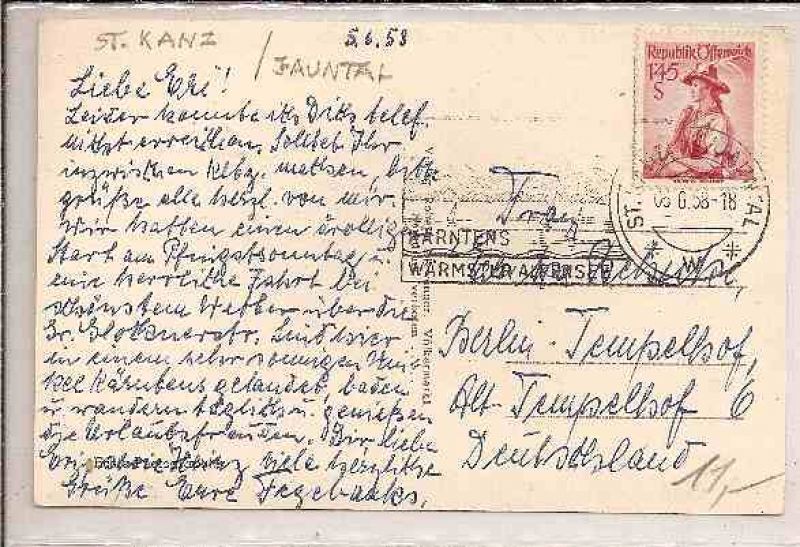 ST. KANZ
/ JAUNTAL
5.6.58
Liebe Eri!
Leider konnte ich Dich telef.
nicht erreichen. Solltet Ihr
inzwischen Klbg. machen, bitte
grüße alle herzl. von mir.
Wir hatten einen drolligen
Start am Pfingstsonntag u.
eine herrliche Fahrt bei
schönstem Wetter über die
Gr. Glocknerstr. Sind hier
in einem sehr sonnigen Win-
kel Kärntens gelandet, baden
u. wandern täglich u. genießen
die Urlaubsfreuden. Dir liebe
Eri, Heinz viele herzliche
Grüße Eure Fegebanks.
Republik Österreich
1.45
S
ST.
6.58-18
KÄRNTENS
WÄRMSTER ALPENSEE
Völkermarkt
Frau
Berlin-Tempelhof,
Alt-Tempelhof 6
Deutschland
11,-